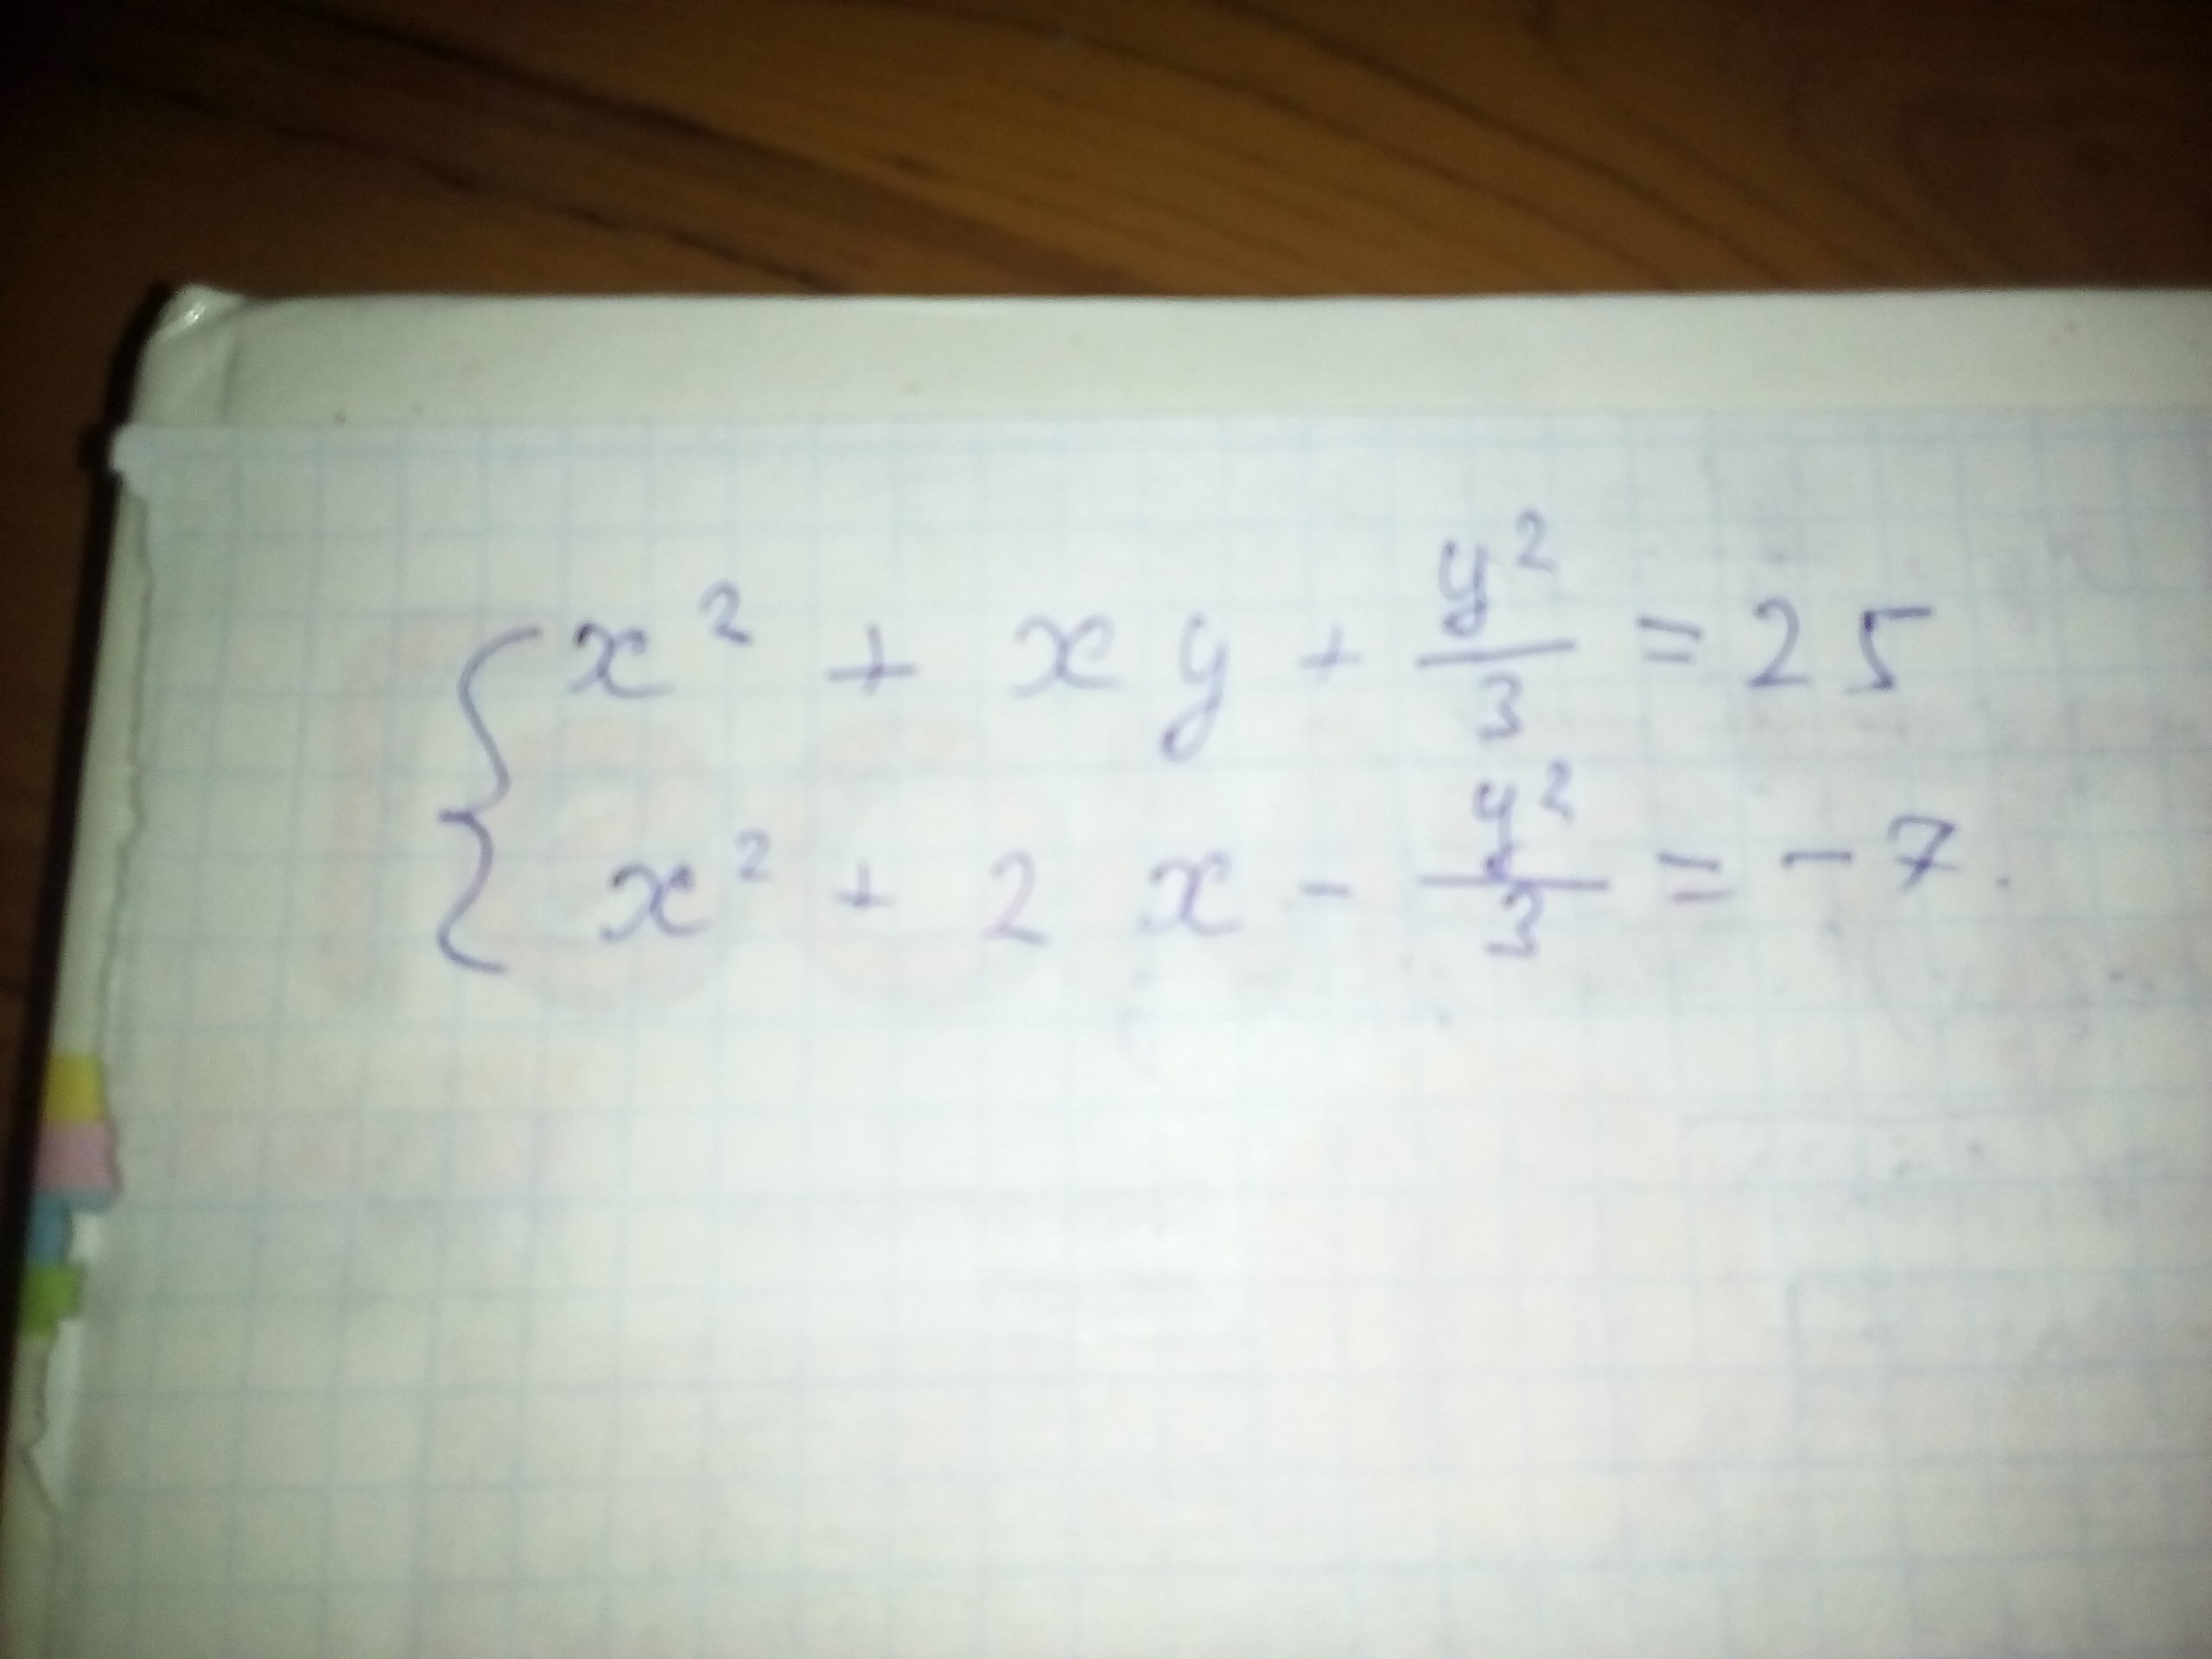 { x² + xy + y²/3 = 25
x² + 2x - y²/3 = -7.